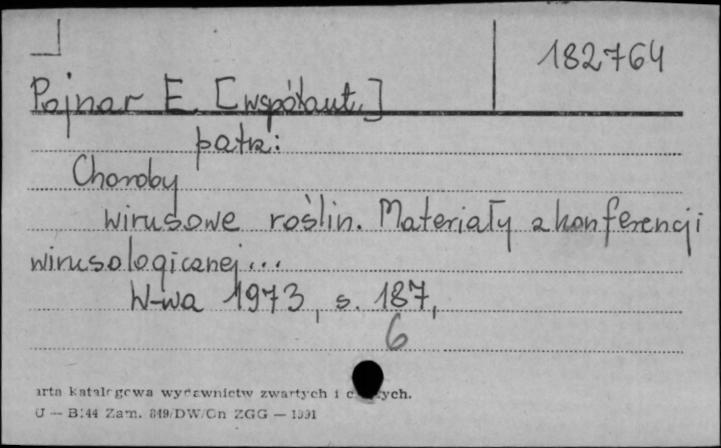 182764
Pojnar E. [współaut.]
patrz:
Choroby
wirusowe roślin. Materiały z konferencji
wirusologicznej...
W-wa 1973, s. 187,
6
arta katalogowa wydawnictw zwartych i
U — B144 Zam. 849/DW/Gn ZGG — 1991